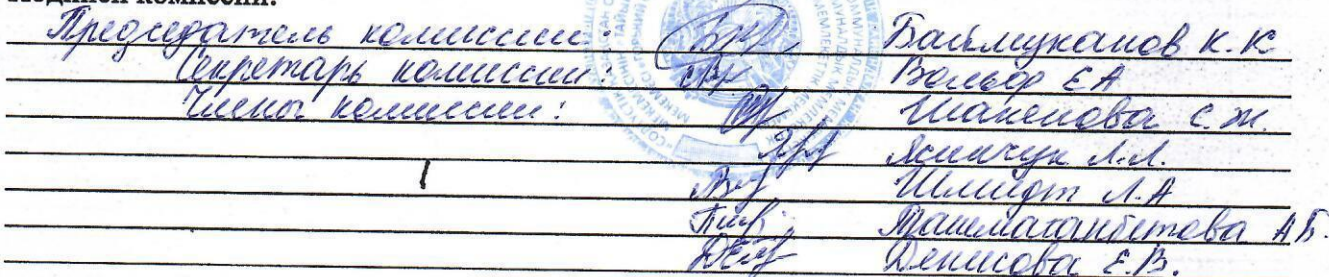 Подписи комиссии:
Председатель комиссии: Баймуканов К.К
Секретарь комиссии: Вольф ЕА
Члены комиссии: Шакенова С.Ж.
Ясинчук Л.Л.
Шмидт Л.А
Ташмаганбетова А.Б.
Денисова Е.В.